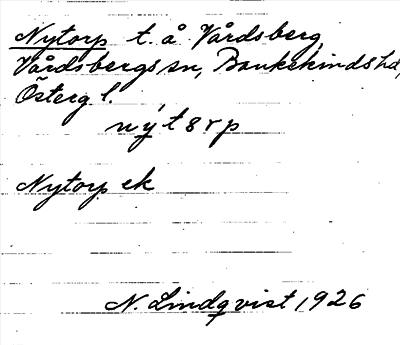 Nytorp t. å Vårdsberg,
Vårdsbergs sn, Bankekinds hd,
Österg l.
nýt8rp
Nytorp ek
N. Lindqvist 1926